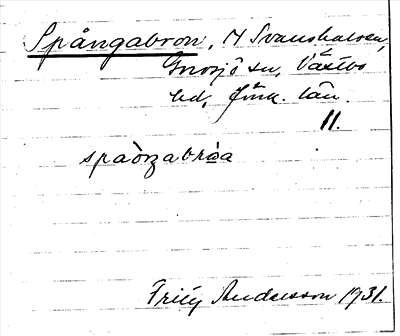 Spångabron, 7 Svanshalsen,
Gnosjö sn, Västbo
hd, Jönk. län.
11.
spaŋabroa
Fritz Andersson 1931.